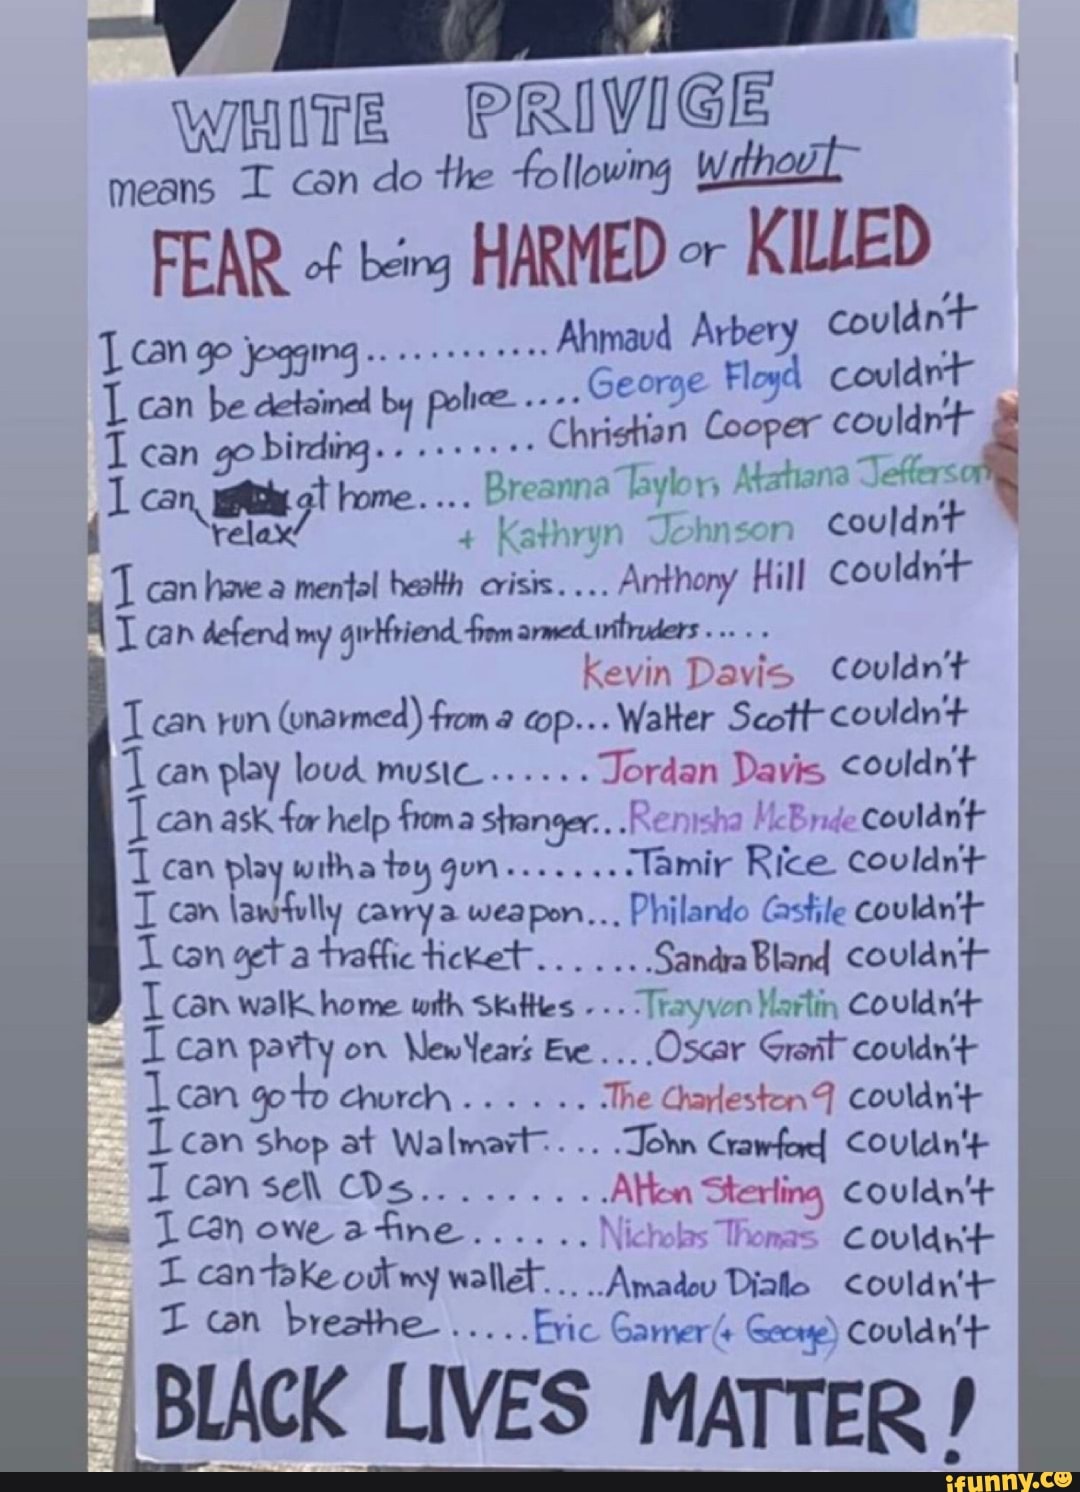 WHITE PRIVIGE
means I can do the following Without
FEAR of being HARMED or KILLED
I can go jogging............ Ahmaud Arbery couldn't
I can be detained by police.....George Floyd couldn't
I can go birding.......... Christian Cooper couldn't
I can at home.... Breanna Taylor, Atatiana Jefferson
relax + Kathryn Johnson couldn't
I can have a mental health crisis.... Anthony Hill couldn't
I can defend my girlfriend from armed intruders.....
Kevin Davis couldn't
I can run (unarmed) from a cop... Walter Scott couldn't
I can play loud music...... Jordan Davis couldn't
I can ask for help from a stranger...Renisha McBride couldn't
I can play with a toy gun........Tamir Rice couldn't
I can lawfully carry a weapon... Philando Castile couldn't
I can get a traffic ticket.......Sandra Bland couldn't
I can walk home with Skittles ....Trayvon Martin couldn't
I can party on New Year's Eve....Oscar Grant couldn't
I can go to church.......The Charleston 9 couldn't
I can shop at Walmart.....John Crawford couldn't
I can sell CDs..........Alton Sterling couldn't
I can owe a fine...... Nicholas Thomas couldn't
I can take out my wallet.....Amadou Diallo couldn't
I can breathe.....Eric Garner(+ George) couldn't
BLACK LIVES MATTER!
ifunny.co